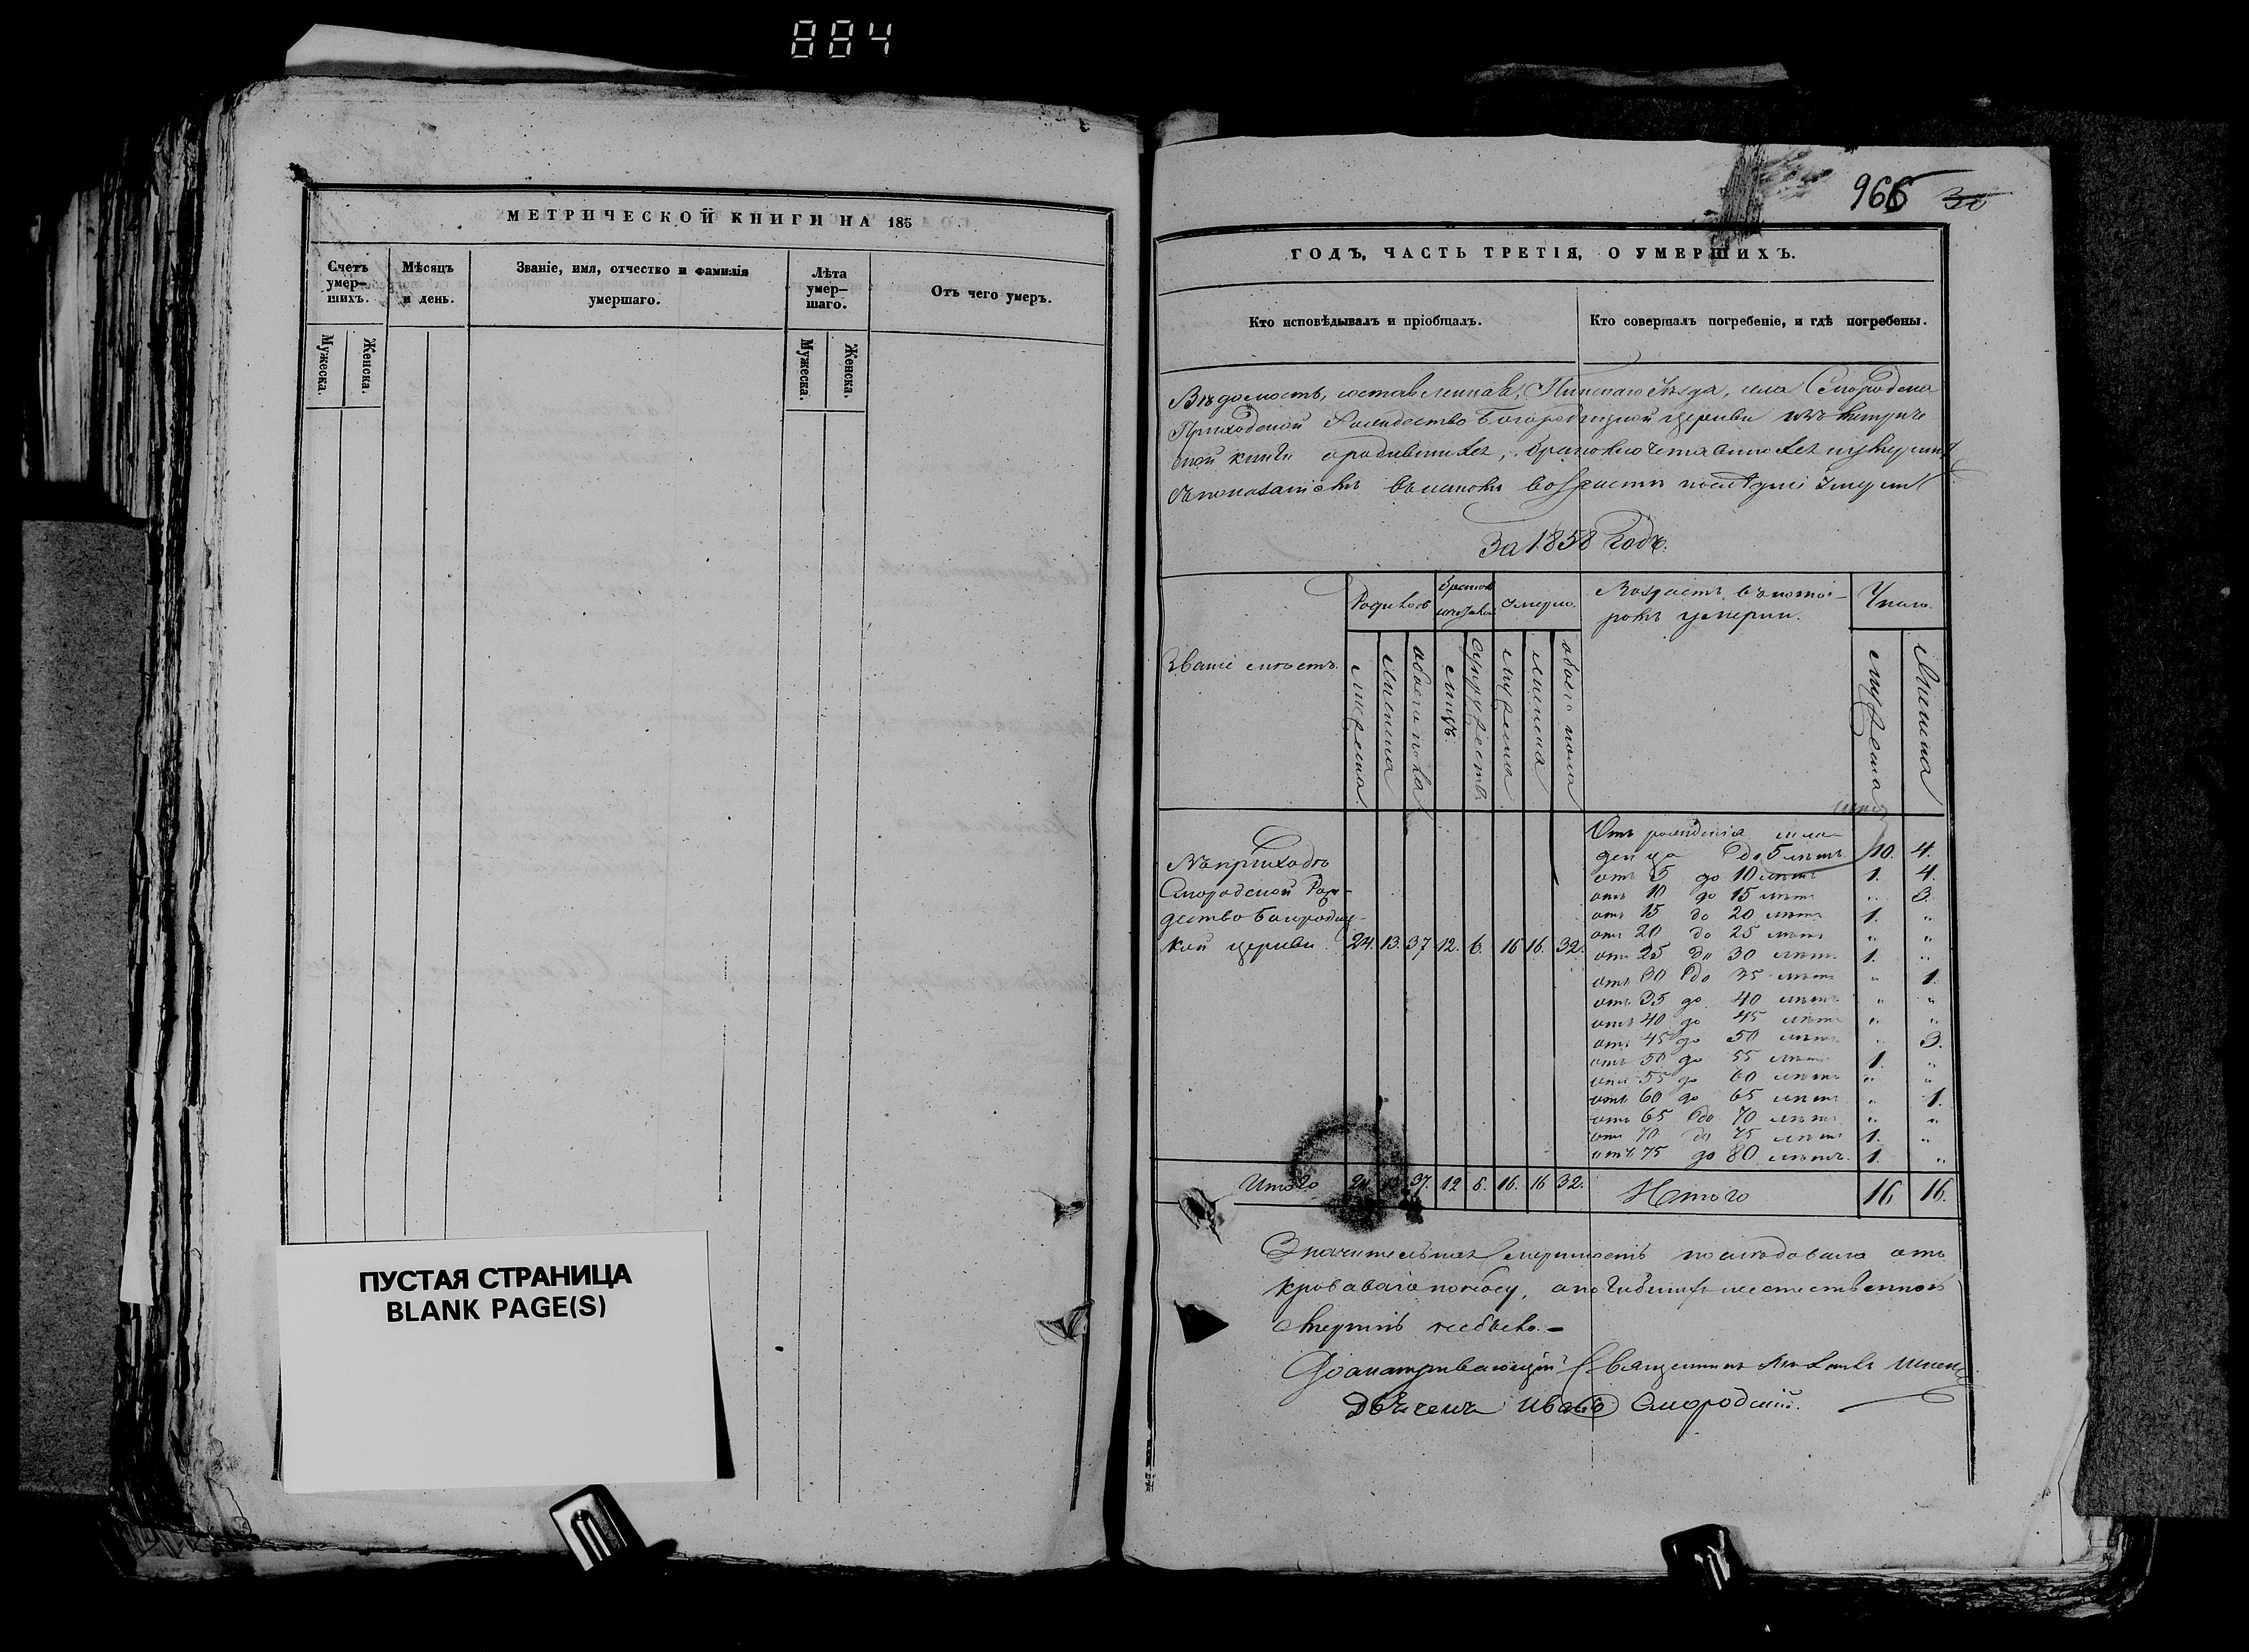 884
МЕТРИЧЕСКОЙ КНИГИ НА 185
Счетъ умер-шихъ.
Мѣсяцъ и день.
Званіе, имя, отчество и фамилія умершаго.
Лѣта умер-шаго.
Отъ чего умеръ.
Мужеска.
Женска.
Мужеска.
Женска.
ПУСТАЯ СТРАНИЦА
BLANK PAGE(S)
966 30
ГОДЪ, ЧАСТЬ ТРЕТІЯ, О УМЕРШИХЪ.
Кто исповѣдывалъ и пріобщалъ.
Кто совершалъ погребеніе, и гдѣ погребены.
Вѣдомость, составленная, Пинскаго Уѣзда, села
Приходской Рождество Богородицкой церкви изъ метриче
ской книги о родившихся, бракосочетавшихся и умершихъ
съ показаніемъ въ какомъ возрастѣ послѣдніе умерли
За 1858 Годъ.
Званіе мѣстъ.
Родилось
Браковъ
Умерло.
Возрастъ, въ кото-
ромъ умерли.
Число.
мужеска
женска
обоего пола
лицъ.
супружествъ.
мужеска
женска
обоего пола
мужеска
женска
Въ приходѣ
Смородской Рож-
дество Богородиц-
кой церкви. 24. 13. 37 12. 6. 16 16. 32.
Отъ рожденія мла-
денца до 5 лѣтъ. 10. 4.
отъ 5 до 10 лѣтъ 1. 4.
отъ 10 до 15 лѣтъ " 3.
отъ 15 до 20 лѣтъ 1. "
отъ 20 до 25 лѣтъ " "
отъ 25 до 30 лѣтъ 1. "
отъ 30 до 35 лѣтъ " 1.
отъ 35 до 40 лѣтъ " "
отъ 40 до 45 лѣтъ " "
отъ 45 до 50 лѣтъ " 3.
отъ 50 до 55 лѣтъ 1. "
отъ 55 до 60 лѣтъ " "
отъ 60 до 65 лѣтъ " 1.
отъ 65 до 70 лѣтъ " "
отъ 70 до 75 лѣтъ 1. "
отъ 75 до 80 лѣтъ. 1. "
Итого 24. 13. 37. 12 6. 16. 16 32. Итого 16 16.
Значительная смертность послѣдовала отъ
кроваваго поносу, а погибшихъ неестественною
смертію небыло.-
Священникъ
Дьячекъ Иванъ Смородскій.